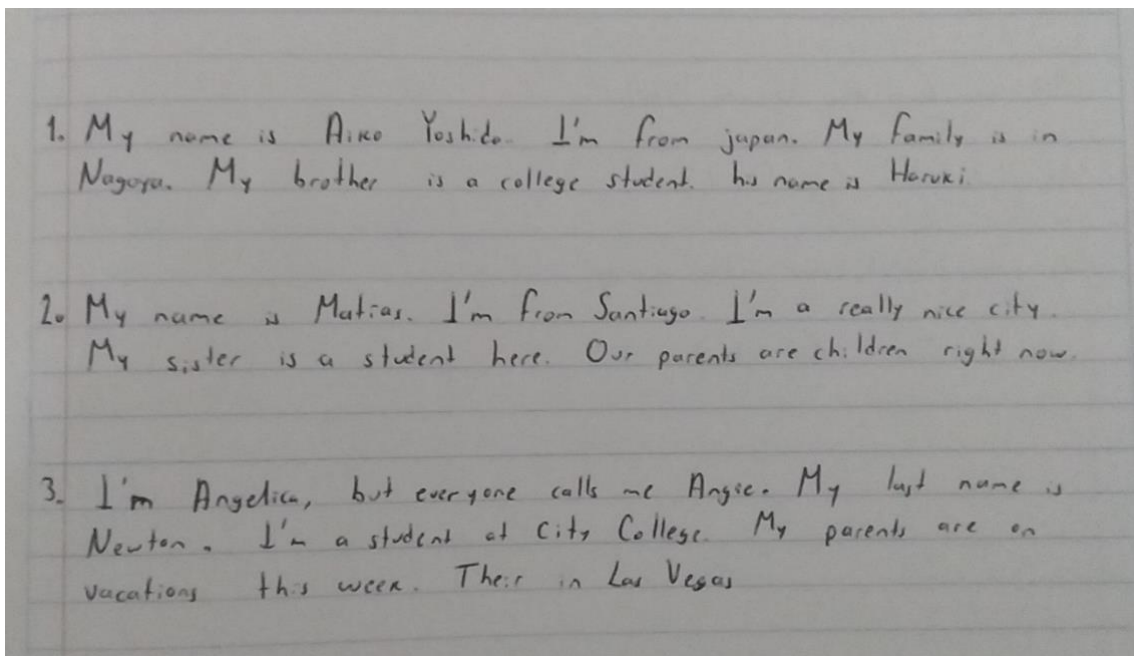 1. My name is Aiko Yoshida. I'm from japan. My family is in
Nagoya. My brother is a college student. his name is Haruki
2. My name is Matias. I'm from Santiago. I'm a really nice city.
My sister is a student here. Our parents are children right now.
3. I'm Angelica, but everyone calls me Angie. My last name is
Newton. I'm a student at City College. My parents are on
vacations this week. Their in Las Vegas